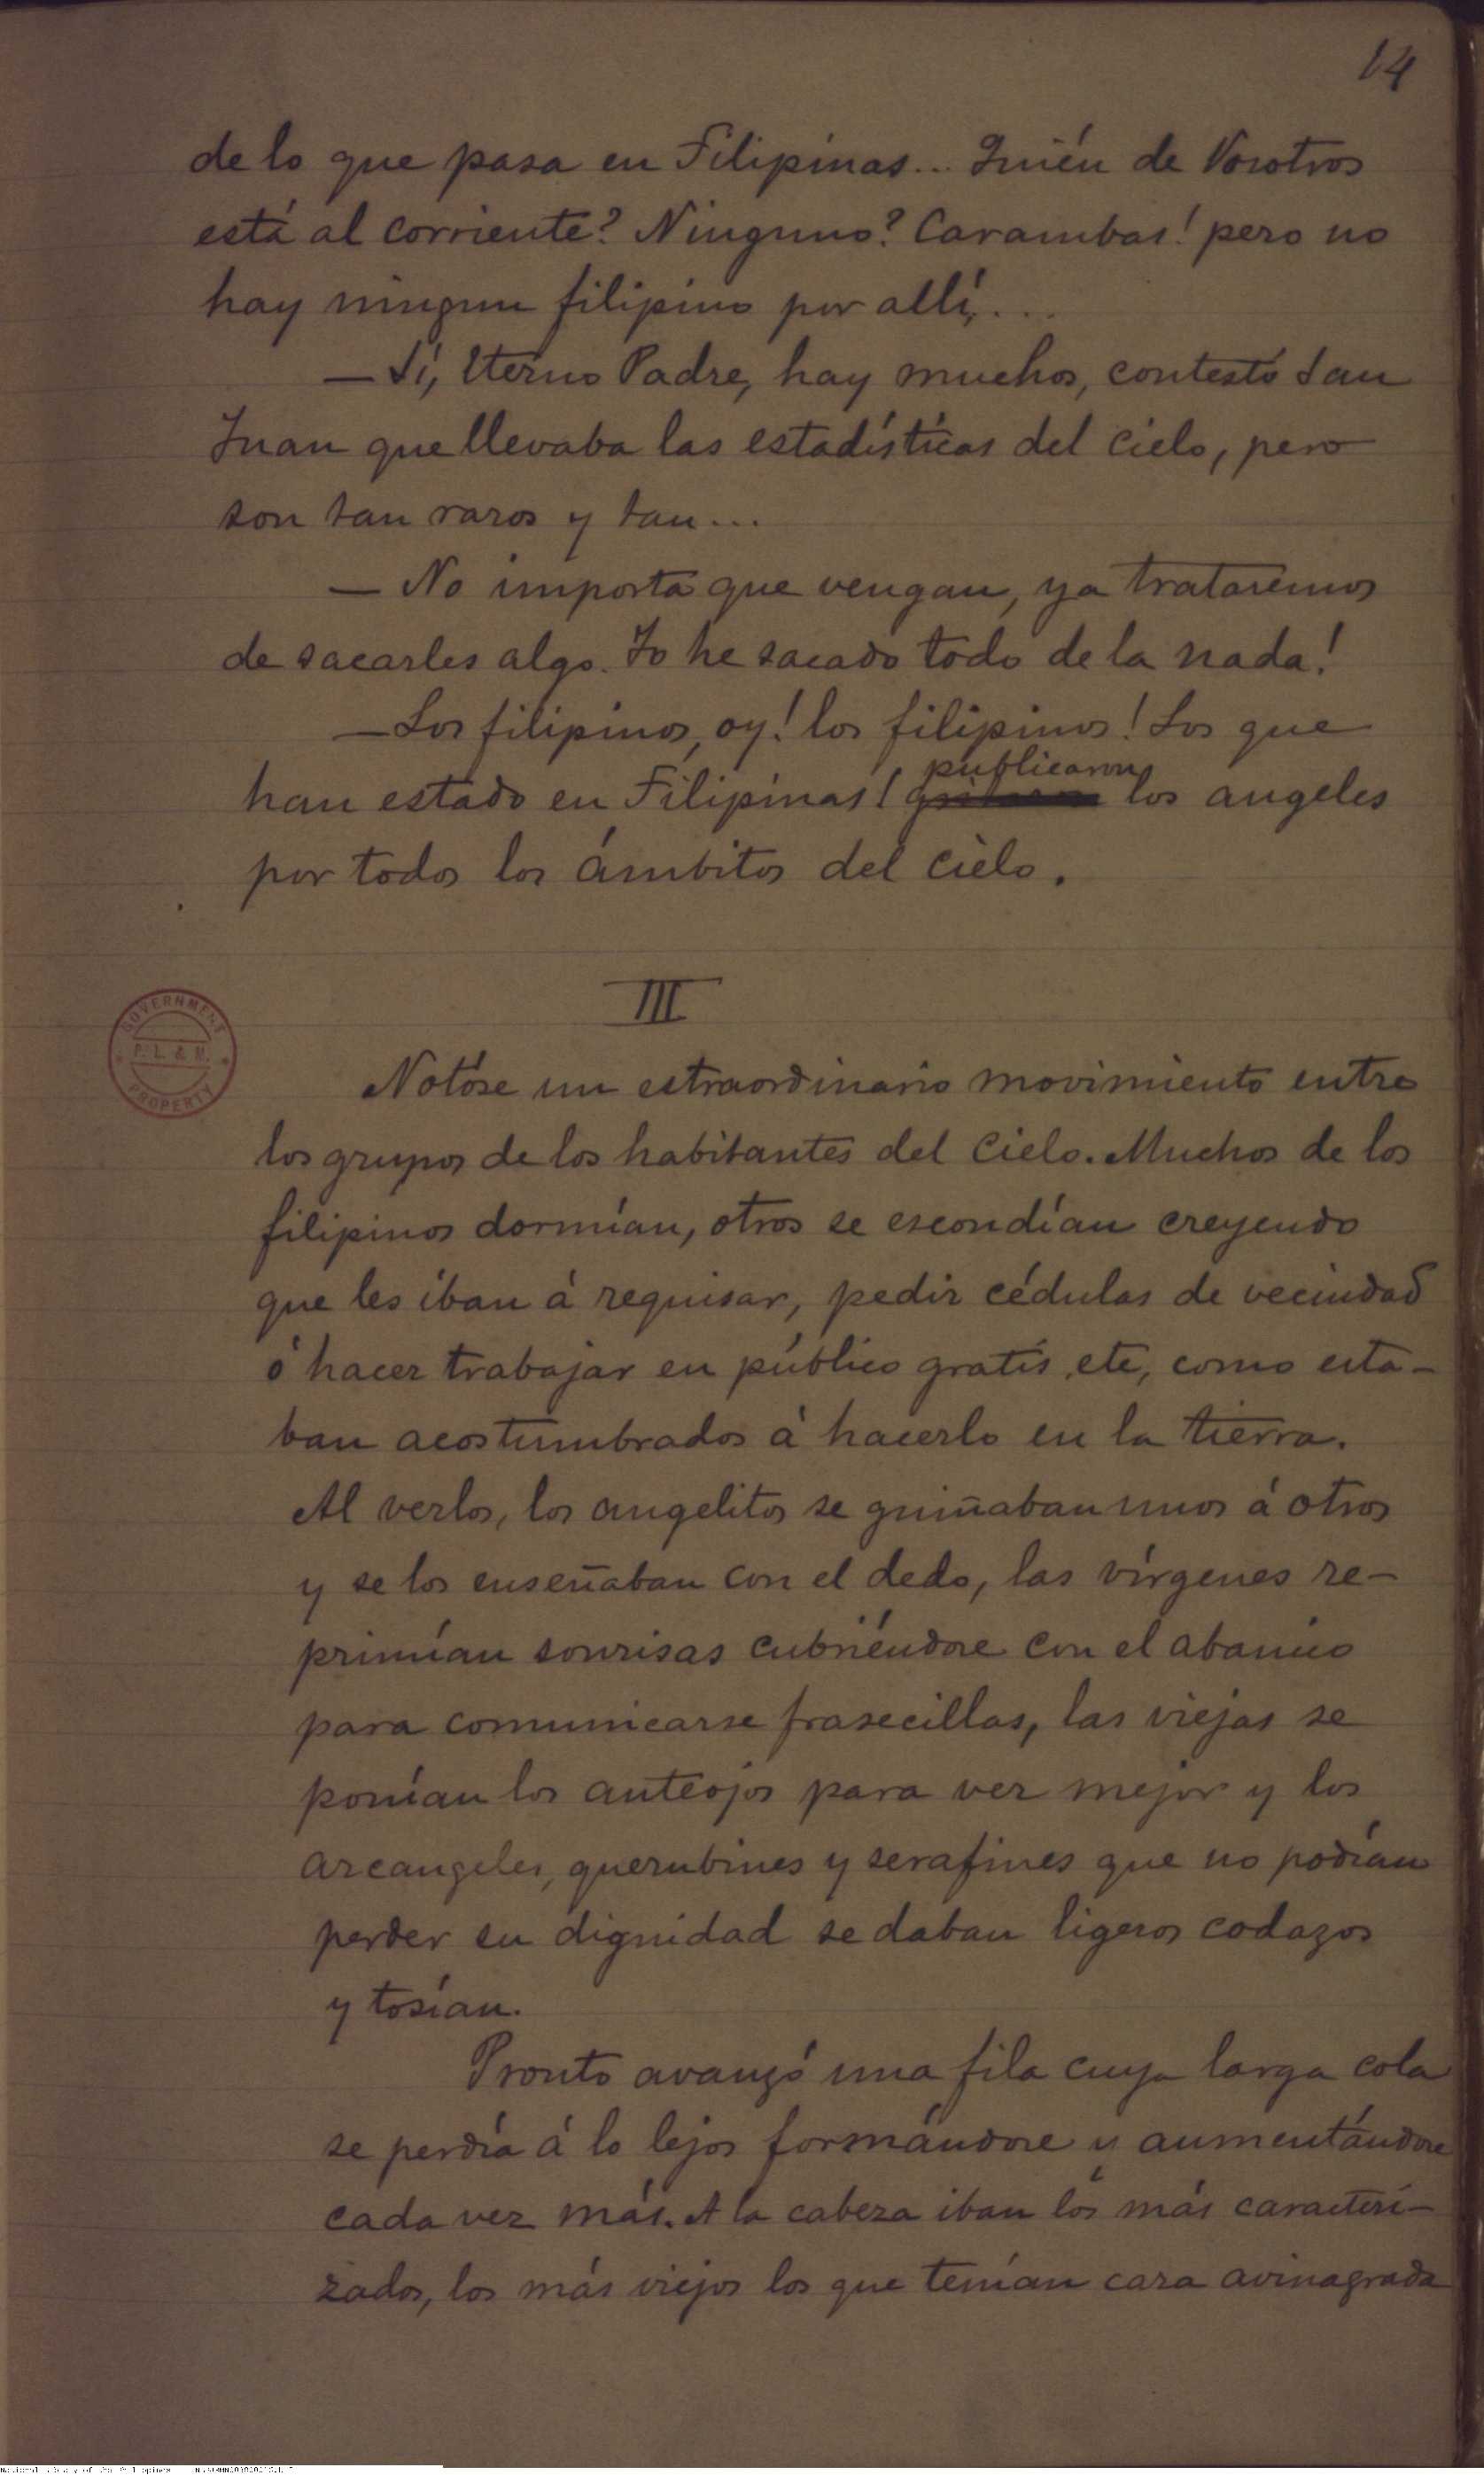 14
de lo que pasa en Filipinas... Quién de Vosotros
está al corriente? Ninguno? Carambas! pero no
hay ningun filipino por allí,...
— Sí, Eterno Padre, hay muchos, contestó San
Juan que llevaba las estadísticas del cielo, pero
son tan raros y tan...
— No importa que vengan, ya trataremos
de sacarles algo. Yo he sacado todo de la nada!
— Los filipinos, oy! los filipinos! Los que
publicaron
han estado en Filipinas! gritaron los angeles
por todos los ámbitos del cielo.
III
GOVERNMENT
P. L. & M.
PROPERTY
Notóse un estraordinario movimiento entre
los grupos de los habitantes del cielo. Muchos de los
filipinos dormían, otros se escondían creyendo
que les iban á requisar, pedir cédulas de vecindad
ó hacer trabajar en público gratis, etc, como esta-
ban acostumbrados á hacerlo en la tierra.
Al verlos, los angelitos se guiñaban unos á otros
y se los enseñaban con el dedo, las vírgenes re-
primían sonrisas cubriéndose con el abanico
para comunicarse frasecillas, las viejas se
ponían los anteojos para ver mejor y los
arcangeles, querubines y serafines que no podían
perder su dignidad se daban ligeros codazos
y tosían.
Pronto avanzó una fila cuya larga cola
se perdía á lo lejos formándose y aumentándose
cada vez más. A la cabeza iban los más caracteri-
zados, los más viejos los que tenían cara avinagrada
National Library of the Philippines